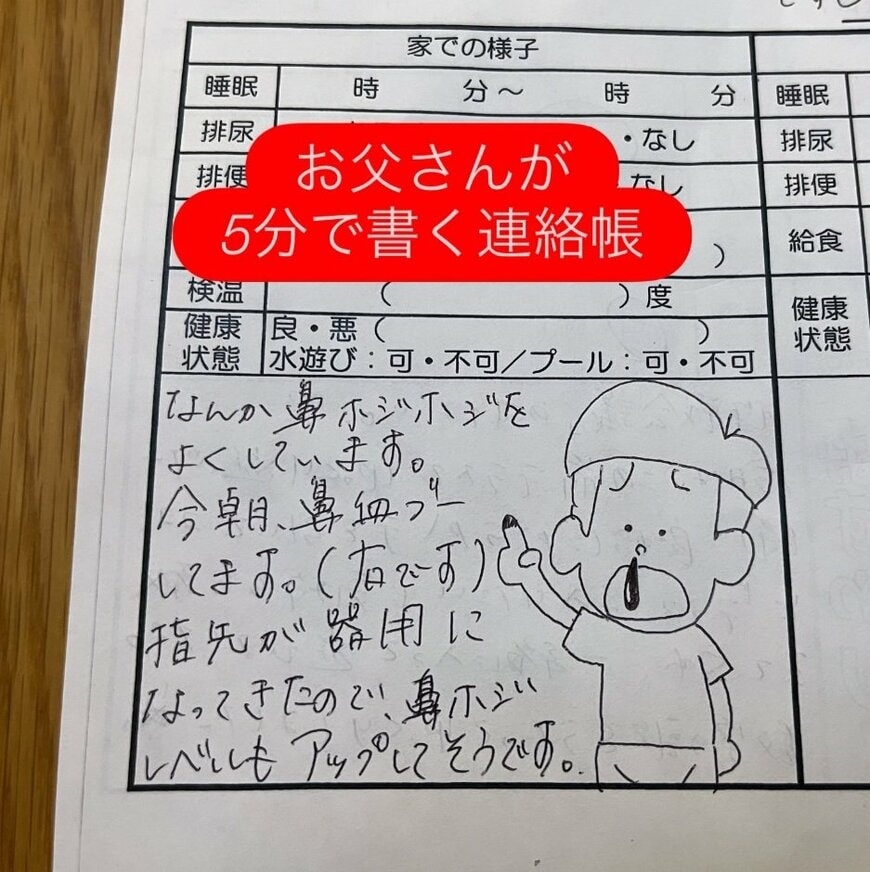 家での様子
睡眠 時 分〜 時 分 睡眠
排尿 ・なし 排尿
排便 なし 排便
お父さんが
5分で書く連絡帳
) 給食
検温 ( )度
健康状態 良・悪( ) 健康状態
水遊び：可・不可／プール：可・不可
なんか鼻ホジホジを
よくしています。
今朝、鼻血ブー
してます。(右です)
指先が器用に
なってきたので、鼻ホジ
レベルもアップしてそうです。